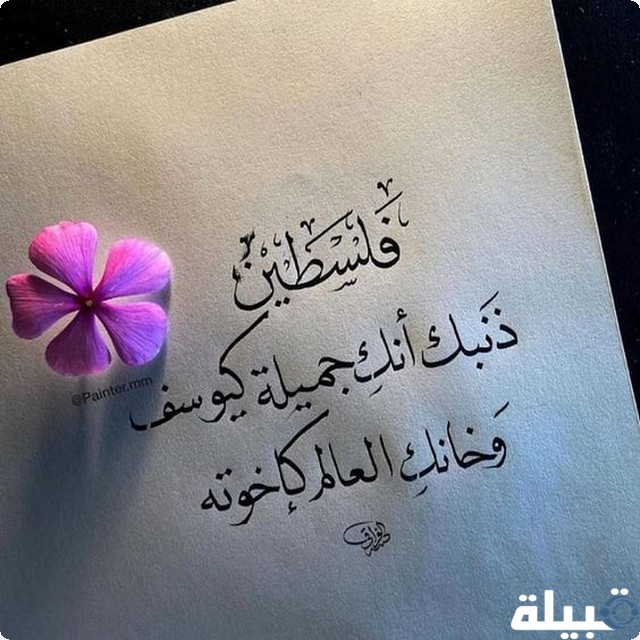 فَلسَطين
ذَنبك أنكِ جميلة كيوسف
وَخانكِ العالم كإخوته
@Painter.mm
قبيلة